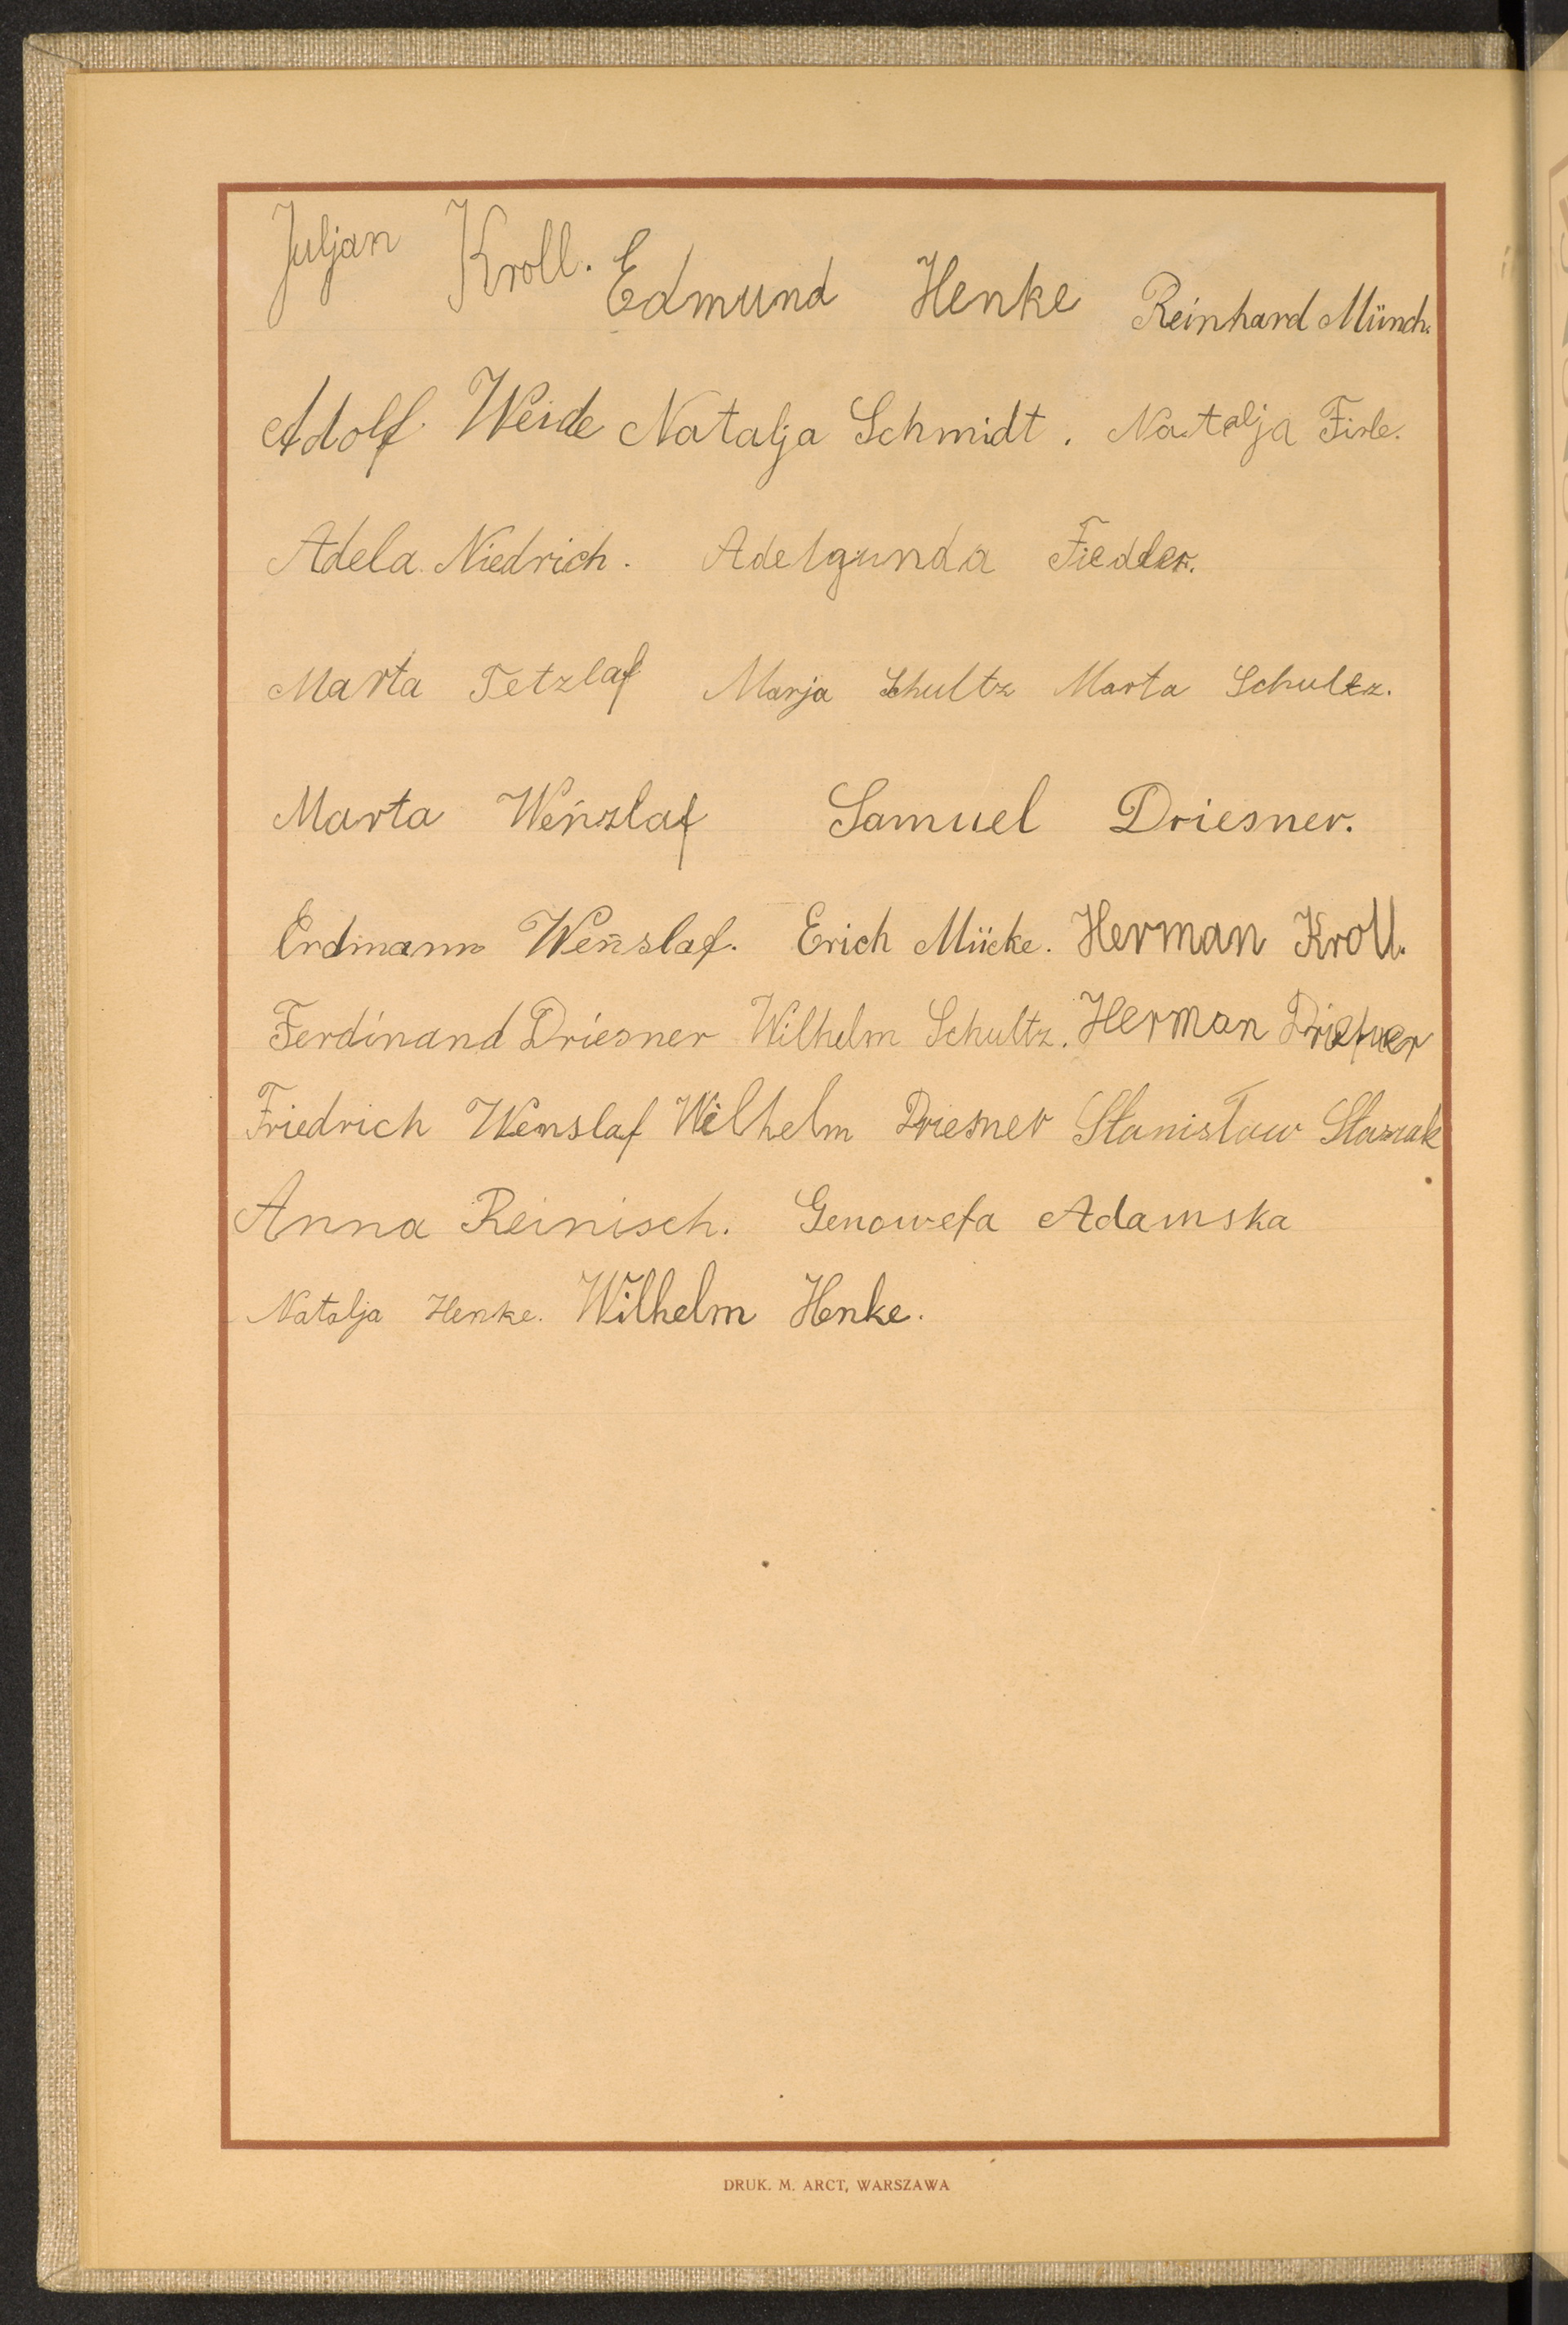 Juljan Kroll. Edmund Henke Reinhard Münch.
Adolf Weide Natalja Schmidt. Natalja Firle.
Adela Niedrich. Adelgunda Fiedler.
Marta Tetzlaf Marja Schultz Marta Schultz.
Marta Wenzlaf Samuel Driesner.
Erdmann Wenslaf. Erich Mücke. Herman Kroll.
Ferdinand Driesner Wilhelm Schultz. Herman
Friedrich Wenslaf Wilhelm Driesner Stanisław
Anna Reinisch. Genowefa Adamska
Natalja Henke. Wilhelm Henke.
DRUK. M. ARCT, WARSZAWA